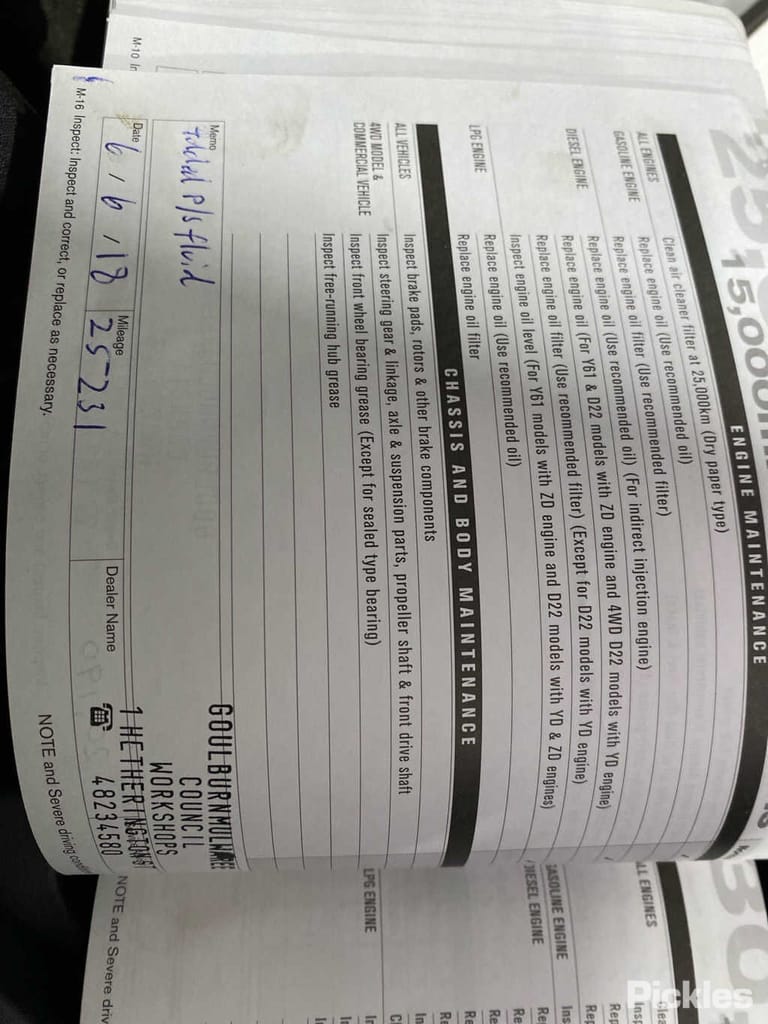 15,000
ENGINE MAINTENANCE
Clean air cleaner filter at 25,000km (Dry paper type)
ALL ENGINES
Replace engine oil (Use recommended oil)
GASOLINE ENGINE
Replace engine oil filter (Use recommended filter)
Replace engine oil (Use recommended oil) (For indirect injection engine)
DIESEL ENGINE
Replace engine oil (For Y61 & D22 models with ZD engine and 4WD D22 models with YD engine)
Replace engine oil filter (Use recommended filter) (Except for D22 models with YD engine)
Inspect engine oil level (For Y61 models with ZD engine and D22 models with YD & ZD engines)
LPG ENGINE
Replace engine oil (Use recommended oil)
Replace engine oil filter
CHASSIS AND BODY MAINTENANCE
ALL VEHICLES
Inspect brake pads, rotors & other brake components
4WD MODEL &
COMMERCIAL VEHICLE
Inspect steering gear & linkage, axle & suspension parts, propeller shaft & front drive shaft
Inspect front wheel bearing grease (Except for sealed type bearing)
Inspect free-running hub grease
Memo
P/s fluid
GOULBURN MULWAREE
COUNCIL
WORKSHOPS
1 HETHERINGTON ST
☎ 48234580
Date 6 / 6 / 18
Mileage 25231
Dealer Name
M-16 Inspect: Inspect and correct, or replace as necessary.
NOTE and Severe driving
M-10
ALL ENGINES
GASOLINE ENGINE
DIESEL ENGINE
LPG ENGINE
NOTE and Severe driv
Pickles